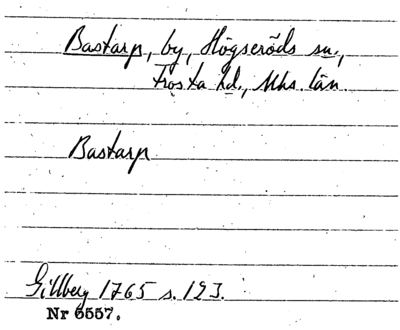 Bastarp, by, Högseröds sn.,
Frosta hd., Mhs. län.
Bastarp
Gillberg 1765 s. 123.
Nr 6557.